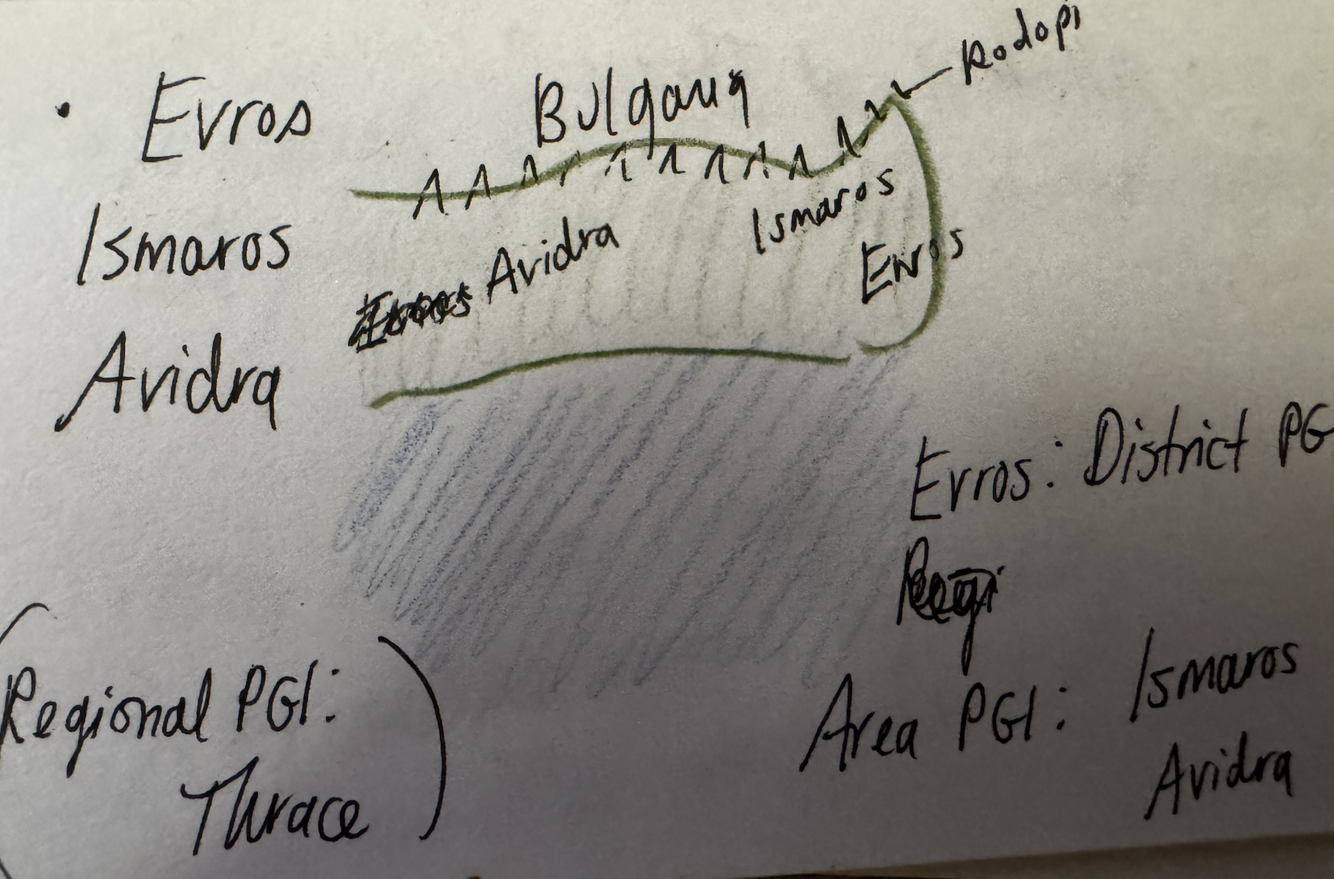 • Evros
Ismaros
Avidra
Bulgaria
Rodopi
Avidra
Ismaros
Evros
Evros: District PG
Area PGI: Ismaros
Avidra
(Regional PGI:
Thrace)